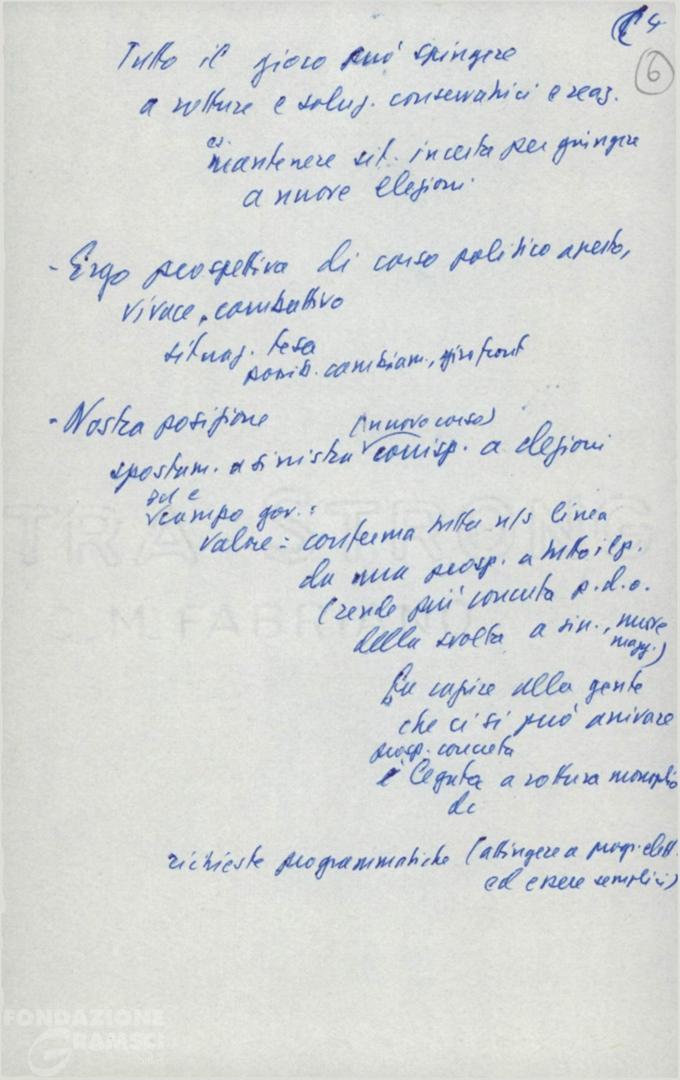 4
6
Tutto il gioco può spingere
a rotture e soluz. conservatrici e reaz.
mantenere sit. incerta per giungere
a nuove elezioni
- Ergo prospettiva di corso politico aperto,
vivace, combattivo
situaz. tesa
possib. cambiam.,
- Nostra posizione
(nuovo corso)
spostam. a sinistra corrisp. a elezioni
campo gov. :
valore = conferma tutta n/s linea
da una prosp. a tutto il p.
(rende più concreta p.d.o.
della svolta a sin., nuove
magg.)
fa capire alla gente
che ci si può arrivare
prosp. concreta
è legata a rottura monopolio
dc
richieste programmatiche (attingere a progr. elett.
ed essere semplici)
TRA STRONG
M FABRIANO
FONDAZIONE
GRAMSCI